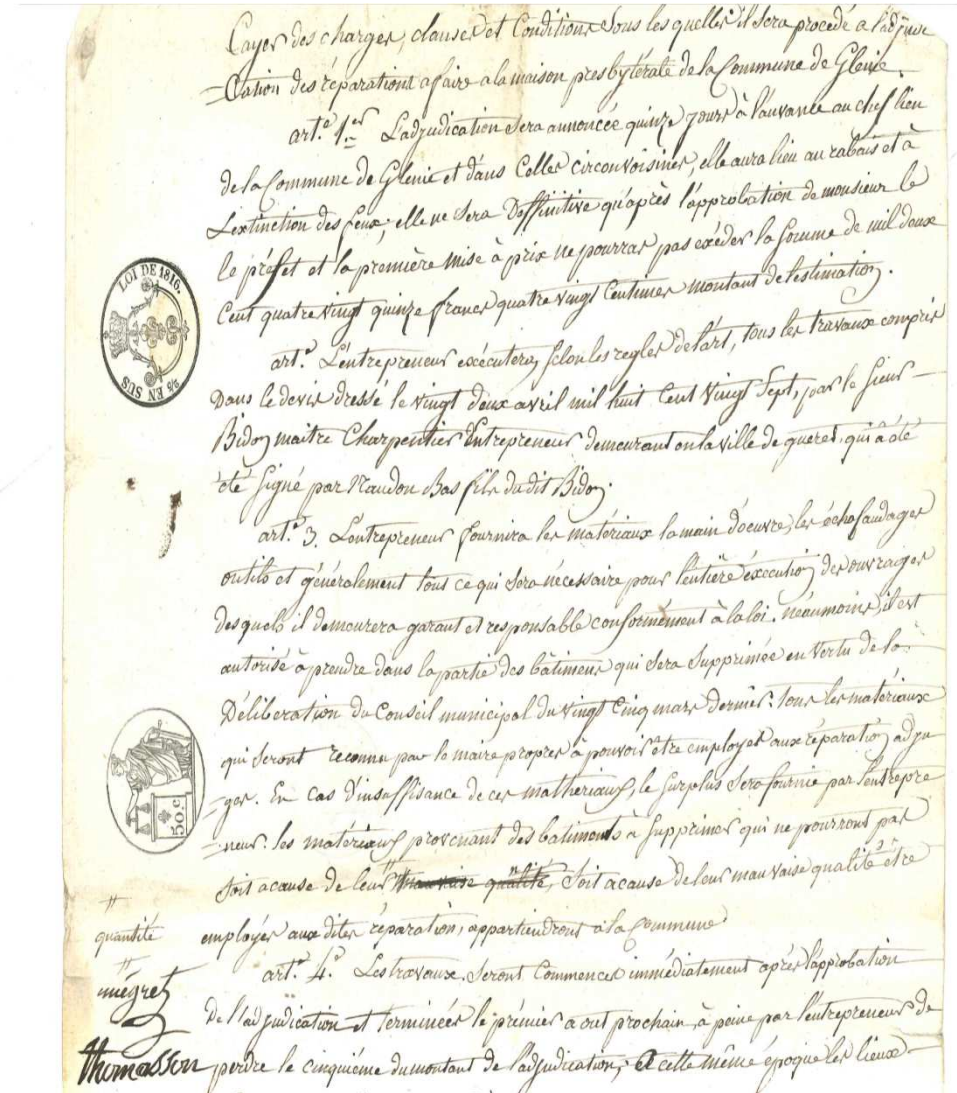 Cayer des charges, clauses et Conditions Sous les quelles il Sera procedé a l'adjudi
=Cation des réparations a faire a la maison presbyterale de la Commune de Glenie.
art.e 1.er L'adjudication Sera annoncée quinze jours à l'auvance au chef lieu
de la Commune de Glenie et dans Celles circonvoisines, elle aura lieu au rabais et à
L'extinction des feux, elle ne Sera Deffinitive qu'après l'approbation de monsieur le
le préfet et la première mise à prix ne pourras pas exéder la Somme de mil deux
Cent quatre vingt quinze francs quatre vingt Centimes montant de l'estimation.
art.e L'entrepreneur exécutera, Selon les regles de l'art, tous les travaux compris
Dans le devis dressé le vingt deux avril mil huit Cent Vingt Sept, par le Sieur
Bidon maitre Charpentier Entrepreneur demeurant en la ville de gueret, qui à été
été Signé par Naudon Bas fils du dit Bidon.
art.e 3. L'entrepreneur fournira les matériaux la main d'oeuvre, les échafaudages
outils et généralement tout ce qui Sera nécessaire pour l'entière éxecution des ouvrages
desquels il demeurera garant et responsable conformément à la loi. néaumoins, il est
autorisé à prendre dans la partie des bâtimens qui Sera Supprimée en Vertu de la
Déliberation du Conseil municipal du vingt Cinq mars dernier: tous les matériaux
qui Seront reconnu par le maire propres à pouvoir être employer aux réparation adju
=ger. En cas d'insuffisance de ces mathériaux, le Surplus Sera fournie par l'entrepre
=neur. les matériaux provenant des batiments à Supprimer qui ne pourront pas
Soit a cause de leur mauvaise qualité, Soit a cause de leur mauvaise qualité être
employés aux dites réparation, appartiendront a la Commune
art.e 4.e Les travaux Seront Commencés immédiatement après l'approbation
De l'adjudication et terminées le prémier aout prochain, a peine par l'entrepreneur de
perdre le cinquiéme du montant de l'adjudication; A cette même époque les lieux
LOI DE 1816.
2/5 EN SUS
50.C
quantité
miégret
thomasson